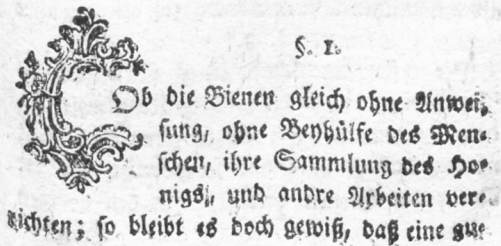 §. 1.
Ob die Bienen gleich ohne Anwei-
sung, ohne Beyhülfe des Men-
schen, ihre Sammlung des Ho-
nigs, und andre Arbeiten ver-
richten; so bleibt es doch gewiß, daß eine gute